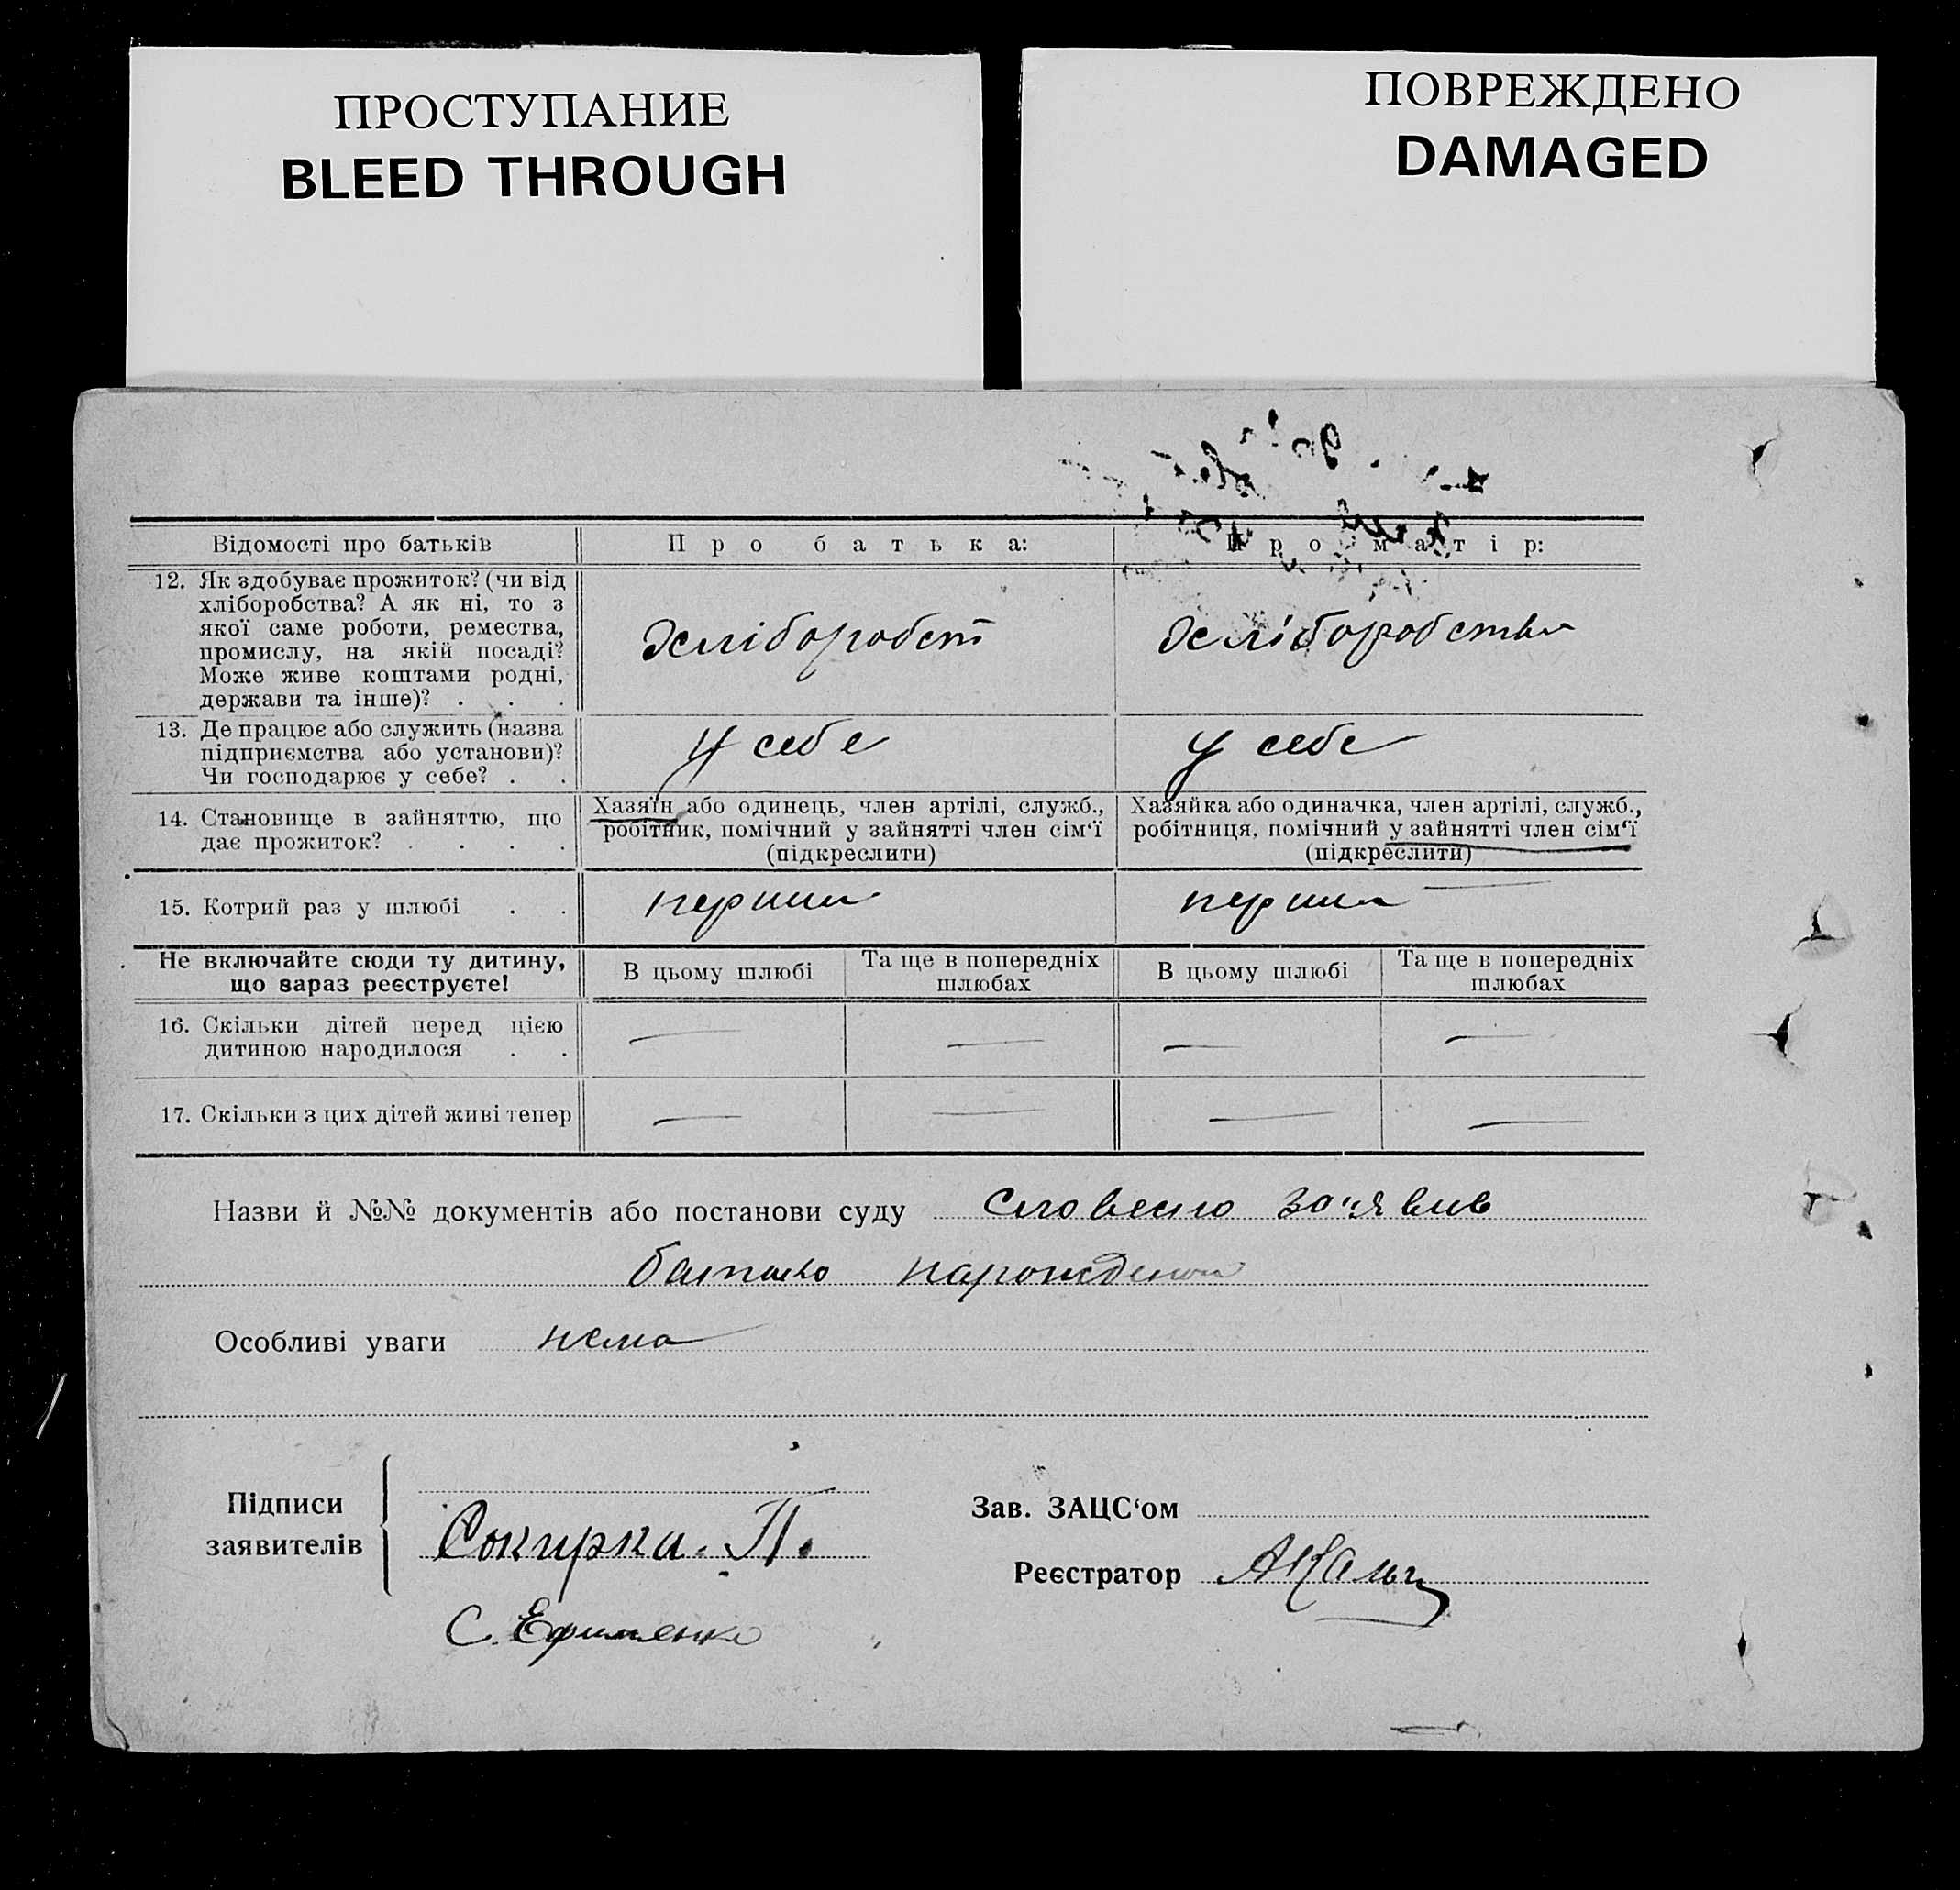 ПРОСТУПАНИЕ
BLEED THROUGH
ПОВРЕЖДЕНО
DAMAGED
Відомості про батьків
Про батька:
Про матір:
12. Як здобуває прожиток? (чи від
хліборобства? А як ні, то з
якої саме роботи, ремества,
промислу, на якій посаді?
Може живе коштами родні,
держави та інше)? . . .
хліборобст
хліборобства
13. Де працює або служить (назва
підприємства або установи)?
Чи господарює у себе? . .
У себе
У себе
14. Становище в зайняттю, що
дає прожиток? . . . .
Хазяїн або одинець, член артілі, служб.,
робітник, помічний у зайнятті член сім‘ї
(підкреслити)
Хазяйка або одиначка, член артілі, служб.,
робітниця, помічний у зайнятті член сім‘ї
(підкреслити)
15. Котрий раз у шлюбі . .
перший
перший
Не включайте сюди ту дитину,
що зараз реєструєте!
В цьому шлюбі
Та ще в попередніх
шлюбах
В цьому шлюбі
Та ще в попередніх
шлюбах
16. Скільки дітей перед цією
дитиною народилося . .
— — — —
17. Скільки з цих дітей живі тепер
— — — —
Назви й №№ документів або постанови суду Словесно зо"явив
батько
Особливі уваги нема
Підписи
заявителів
Сокирка. П.
С. Ефименко
Зав. ЗАЦС‘ом
Реєстратор